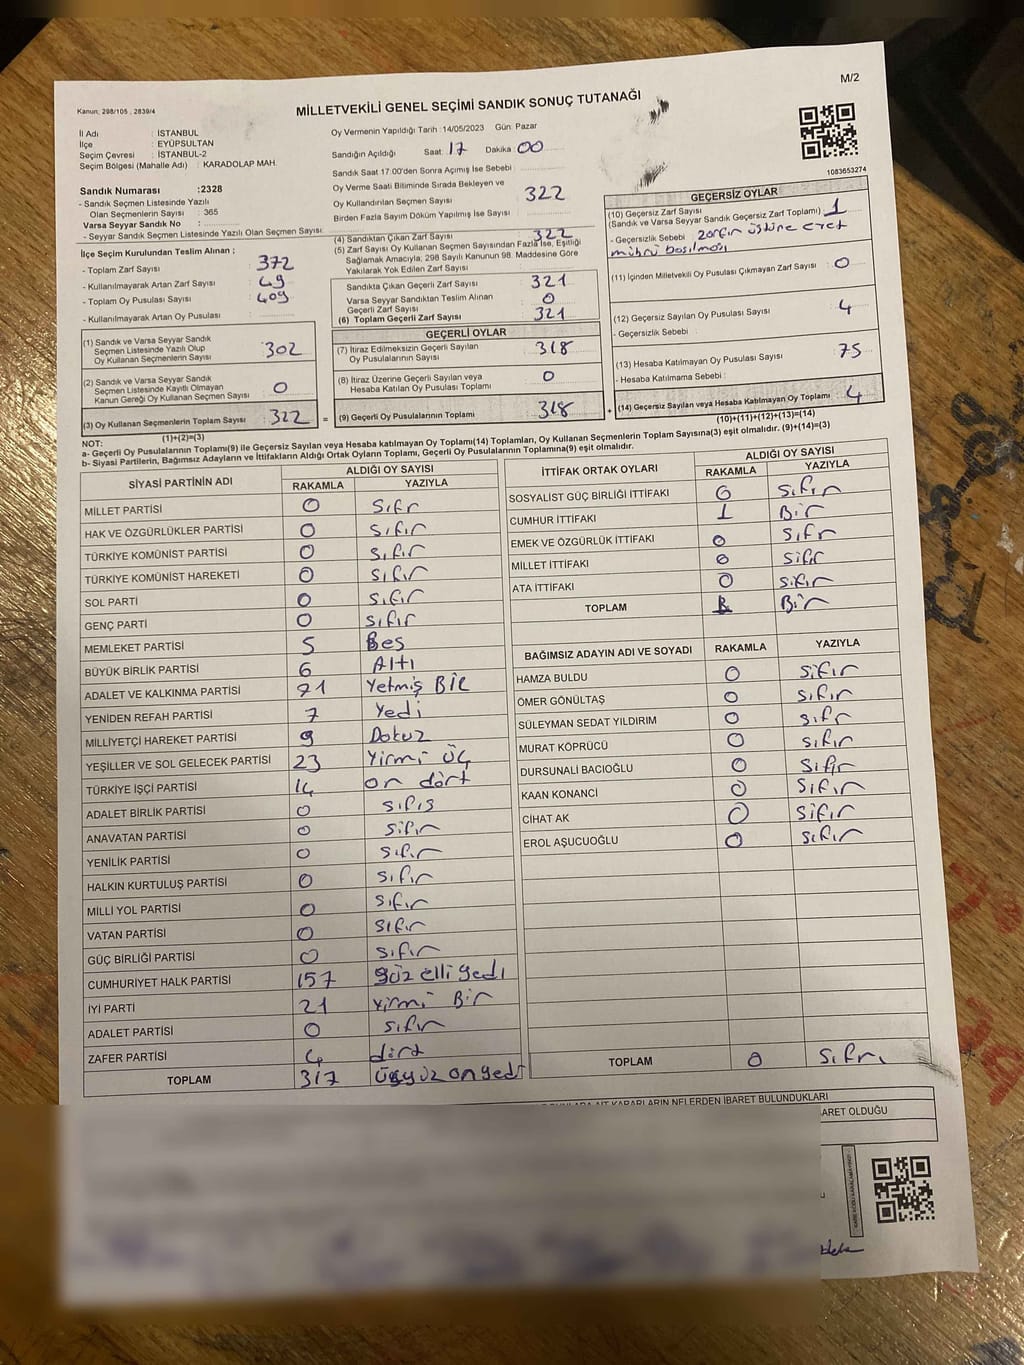 M/2
Kanun: 298/105 , 2839/4
MİLLETVEKİLİ GENEL SEÇİMİ SANDIK SONUÇ TUTANAĞI
İl Adı : İSTANBUL
İlçe : EYÜPSULTAN
Seçim Çevresi : İSTANBUL-2
Seçim Bölgesi (Mahalle Adı) : KARADOLAP MAH.
Sandık Numarası :2328
- Sandık Seçmen Listesinde Yazılı
Olan Seçmenlerin Sayısı : 365
Varsa Seyyar Sandık No :
- Seyyar Sandık Seçmen Listesinde Yazılı Olan Seçmen Sayısı:
Oy Vermenin Yapıldığı Tarih :14/05/2023 Gün: Pazar
Sandığın Açıldığı Saat: 17 Dakika: 00
Sandık Saat 17.00'den Sonra Açımış İse Sebebi :
Oy Verme Saati Bitiminde Sırada Bekleyen ve
Oy Kullandırılan Seçmen Sayısı : 322
Birden Fazla Sayım Döküm Yapılmış İse Sayısı :
1083653274
İlçe Seçim Kurulundan Teslim Alınan ;
- Toplam Zarf Sayısı : 372
- Kullanılmayarak Artan Zarf Sayısı : 49
- Toplam Oy Pusulası Sayısı : 409
- Kullanılmayarak Artan Oy Pusulası :
(1) Sandık ve Varsa Seyyar Sandık
Seçmen Listesinde Yazılı Olup
Oy Kullanan Seçmenlerin Sayısı : 302
(2) Sandık ve Varsa Seyyar Sandık
Seçmen Listesinde Kayıtlı Olmayan
Kanun Gereği Oy Kullanan Seçmen Sayısı : 0
(3) Oy Kullanan Seçmenlerin Toplam Sayısı : 322 =
(1)+(2)=(3)
(4) Sandıktan Çıkan Zarf Sayısı : 322
(5) Zarf Sayısı Oy Kullanan Seçmen Sayısından Fazla İse, Eşitliği
Sağlamak Amacıyla, 298 Sayılı Kanunun 98. Maddesine Göre
Yakılarak Yok Edilen Zarf Sayısı :
Sandıkta Çıkan Geçerli Zarf Sayısı : 321
Varsa Seyyar Sandıktan Teslim Alınan
Geçerli Zarf Sayısı : 0
(6) Toplam Geçerli Zarf Sayısı : 321
GEÇERLİ OYLAR
(7) İtiraz Edilmeksizin Geçerli Sayılan
Oy Pusulalarının Sayısı : 318
(8) İtiraz Üzerine Geçerli Sayılan veya
Hesaba Katılan Oy Pusulası Toplamı : 0
(9) Geçerli Oy Pusulalarının Toplamı : 318 +
GEÇERSİZ OYLAR
(10) Geçersiz Zarf Sayısı
(Sandık ve Varsa Seyyar Sandık Geçersiz Zarf Toplamı) : 1
- Geçersizlik Sebebi : zarfın üstüne evet
mührü basılması
(11) İçinden Milletvekili Oy Pusulası Çıkmayan Zarf Sayısı : 0
(12) Geçersiz Sayılan Oy Pusulası Sayısı : 4
- Geçersizlik Sebebi :
(13) Hesaba Katılmayan Oy Pusulası Sayısı : 75
- Hesaba Katılmama Sebebi :
(14) Geçersiz Sayılan veya Hesaba Katılmayan Oy Toplamı : 4
(10)+(11)+(12)+(13)=(14)
NOT:
a- Geçerli Oy Pusulalarının Toplamı(9) ile Geçersiz Sayılan veya Hesaba katılmayan Oy Toplamı(14) Toplamları, Oy Kullanan Seçmenlerin Toplam Sayısına(3) eşit olmalıdır. (9)+(14)=(3)
b- Siyasi Partilerin, Bağımsız Adayların ve İttifakların Aldığı Ortak Oyların Toplamı, Geçerli Oy Pusulalarının Toplamına(9) eşit olmalıdır.
SİYASİ PARTİNİN ADI ALDIĞI OY SAYISI
RAKAMLA YAZIYLA
MİLLET PARTİSİ 0 Sıfr
HAK VE ÖZGÜRLÜKLER PARTİSİ 0 Sıfır
TÜRKİYE KOMÜNİST PARTİSİ 0 Sıfır
TÜRKİYE KOMÜNİST HAREKETİ 0 Sıfır
SOL PARTİ 0 Sıfır
GENÇ PARTİ 0 sıfır
MEMLEKET PARTİSİ 5 Bes
BÜYÜK BİRLİK PARTİSİ 6 Altı
ADALET VE KALKINMA PARTİSİ 71 Yetmiş BİR
YENİDEN REFAH PARTİSİ 7 Yedi
MİLLİYETÇİ HAREKET PARTİSİ 9 Dokuz
YEŞİLLER VE SOL GELECEK PARTİSİ 23 Yirmi ÜÇ
TÜRKİYE İŞÇİ PARTİSİ 14 on dört
ADALET BİRLİK PARTİSİ 0 sıfır
ANAVATAN PARTİSİ 0 Sıfır
YENİLİK PARTİSİ 0 Sıfır
HALKIN KURTULUŞ PARTİSİ 0 Sıfır
MİLLİ YOL PARTİSİ 0 Sıfır
VATAN PARTİSİ 0 Sıfır
GÜÇ BİRLİĞİ PARTİSİ 0 Sıfır
CUMHURİYET HALK PARTİSİ 157 yüz elli yedi
İYİ PARTİ 21 Yirmi Bir
ADALET PARTİSİ 0 Sıfır
ZAFER PARTİSİ 4 dört
TOPLAM 317 Üçyüz onyedi
İTTİFAK ORTAK OYLARI ALDIĞI OY SAYISI
RAKAMLA YAZIYLA
SOSYALİST GÜÇ BİRLİĞİ İTTİFAKI 0 Sıfır
CUMHUR İTTİFAKI 1 Bir
EMEK VE ÖZGÜRLÜK İTTİFAKI 0 Sıfr
MİLLET İTTİFAKI 0 Sıfır
ATA İTTİFAKI 0 Sıfır
TOPLAM 1 Bir
BAĞIMSIZ ADAYIN ADI VE SOYADI RAKAMLA YAZIYLA
HAMZA BULDU 0 Sıfır
ÖMER GÖNÜLTAŞ 0 Sıfır
SÜLEYMAN SEDAT YILDIRIM 0 Sıfr
MURAT KÖPRÜCÜ 0 Sıfır
DURSUNALİ BACIOĞLU 0 Sıfır
KAAN KONANCİ 0 Sıfır
CİHAT AK 0 Sıfır
EROL AŞUCUOĞLU 0 Sıfır
TOPLAM 0 Sıfır
AİT KARARLARIN NELERDEN İBARET BULUNDUKLARI
ARET OLDUĞU